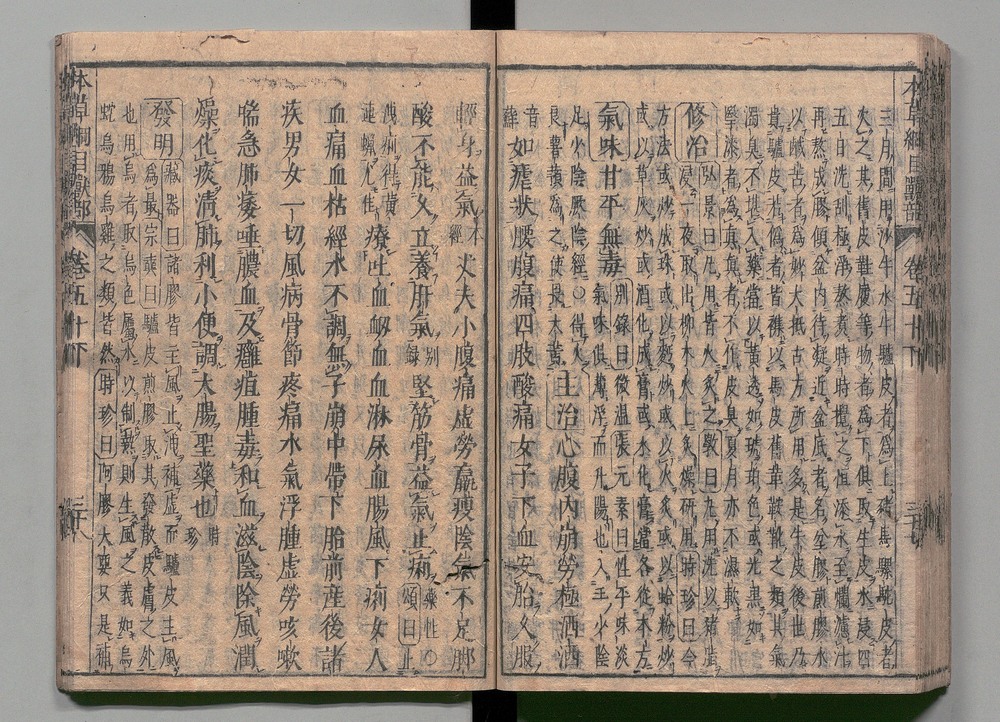 本草綱目獸部 卷五十下 三十七
三月間用沙牛水牛驢皮者爲上豬馬騾駝皮者
次之其舊皮鞋履等物者爲下俱取生皮水浸四
五日洗刮極淨熬煮時時攪之恒添水至爛濾汁
再熬成膠傾盆內待凝近盆底者名坌膠煎膠水
以鹹苦者爲妙大抵古方所用多是牛皮後世乃
貴驢皮若僞者皆雜以馬皮舊革鞍靴之類其氣
濁臭不堪入藥當以黃透如琥珀色或光黑如
瑿漆者爲真真者不作皮臭夏月亦不濕軟
修治 弘景曰凡用皆火炙之斅曰凡用先以豬脂
浸一夜取出柳木火上炙燥研用時珍曰今
方法或炒成珠或以麪炒或以酥炙或以蛤粉炒
或以草灰炒或酒化成膏或水化膏當各從本方
氣味甘平無毒 別錄曰微溫張元素曰性平味淡
氣味俱薄浮而升陽也入手少陰
足少陰厥陰經○得火
良薯蕷爲之使畏大黃 主治心腹內崩勞極洒洒
音蘚 如瘧狀腰腹痛四肢酸痛女子下血安胎久服
輕身益氣本經 丈夫小腹痛虛勞羸瘦陰氣不足脚
酸不能久立養肝氣別錄 堅筋骨益氣止痢藥性○頌曰止
洩痢得黃
連蠟尤佳 療吐血衄血血淋尿血腸風下痢女人
血痛血枯經水不調無子崩中帶下胎前產後諸
疾男女一切風病骨節疼痛水氣浮腫虛勞咳嗽
喘急肺痿唾膿血及癰疽腫毒和血滋陰除風潤
燥化痰清肺利小便調大腸聖藥也時珍
發明 藏器曰諸膠皆主風止洩補虛而驢皮主風
爲最宗奭曰驢皮煎膠取其發散皮膚之外
也用烏者取烏色屬水以制熱則生風之義如烏
蛇烏鴉烏雞之類皆然時珍曰阿膠大要只是補
本草綱目獸部 卷五十下 三十八